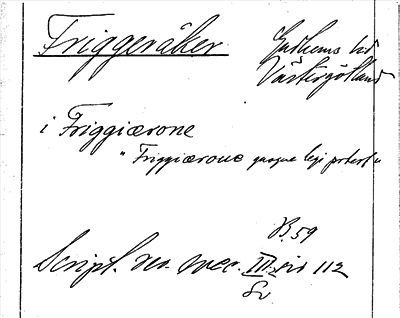 Friggeråker
Gudhems hd
Västergötland
i Friggiærone
"Friggiærone quoque legi potest"
B. 59
Script. rer. svec. III:2 sid 112